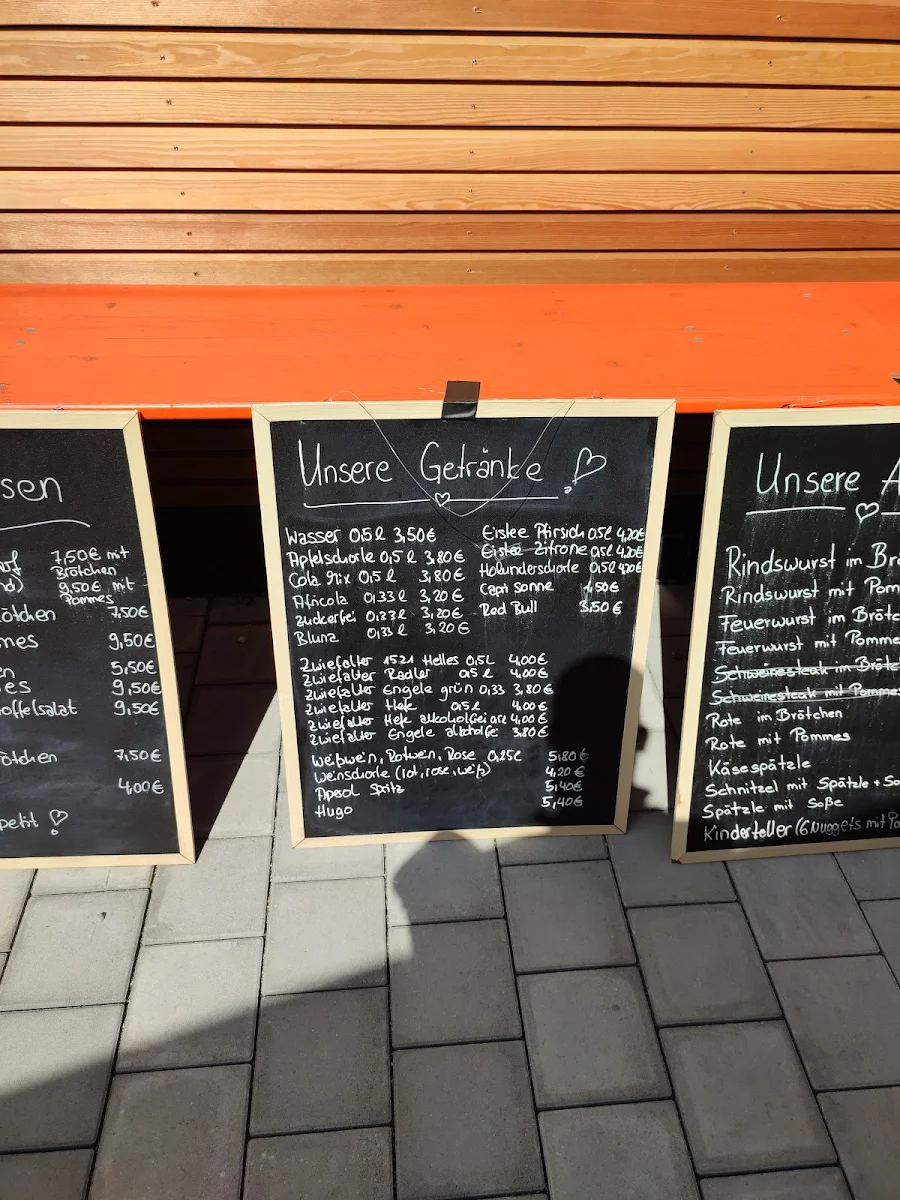 sen
7,50€ mit
Brötchen
9,50€ mit
Pommes
ötchen 7,50€
mes 9,50€
en 5,50€
es 9,50€
offelsalat 9,50€
ötchen 7,50€
4,00€
petit
Unsere Getränke
Wasser 0,5l 3,50€
Apfelschorle 0,5l 3,80€
Cola Mix 0,5l 3,80€
Africola 0,33l 3,20€
Zuckerfrei 0,33l 3,20€
Bluna 0,33l 3,20€
Eistee Pfirsich 0,5l 4,20€
Eistee Zitrone 0,5l 4,20€
Holunderschorle 0,5l 4,20€
Capri Sonne 1,50€
Red Bull 3,50€
Zwiefalter 1521 Helles 0,5L 4,00€
Zwiefalter Radler 0,5l 4,00€
Zwiefalter Engele grün 0,33 3,80€
Zwiefalter Hefe 0,5l 4,00€
Zwiefalter Hefe alkoholfrei 0,5l 4,00€
Zwiefalter Engele alkoholfrei 3,80€
Weißwein, Rotwein, Rose 0,25l 5,80€
Weinschorle (rot, rose, weiß) 4,20€
Aperol Spritz 5,40€
Hugo 5,40€
Unsere A
Rindswurst im Brö
Rindswurst mit Pom
Feuerwurst im Brötc
Feuerwurst mit Pomme
Schweinesteak im Brötc
Schweinesteak mit Pommes
Rote im Brötchen
Rote mit Pommes
Käsespätzle
Schnitzel mit Spätzle + So
Spätzle mit Soße
Kinderteller (6 Nuggets mit Po